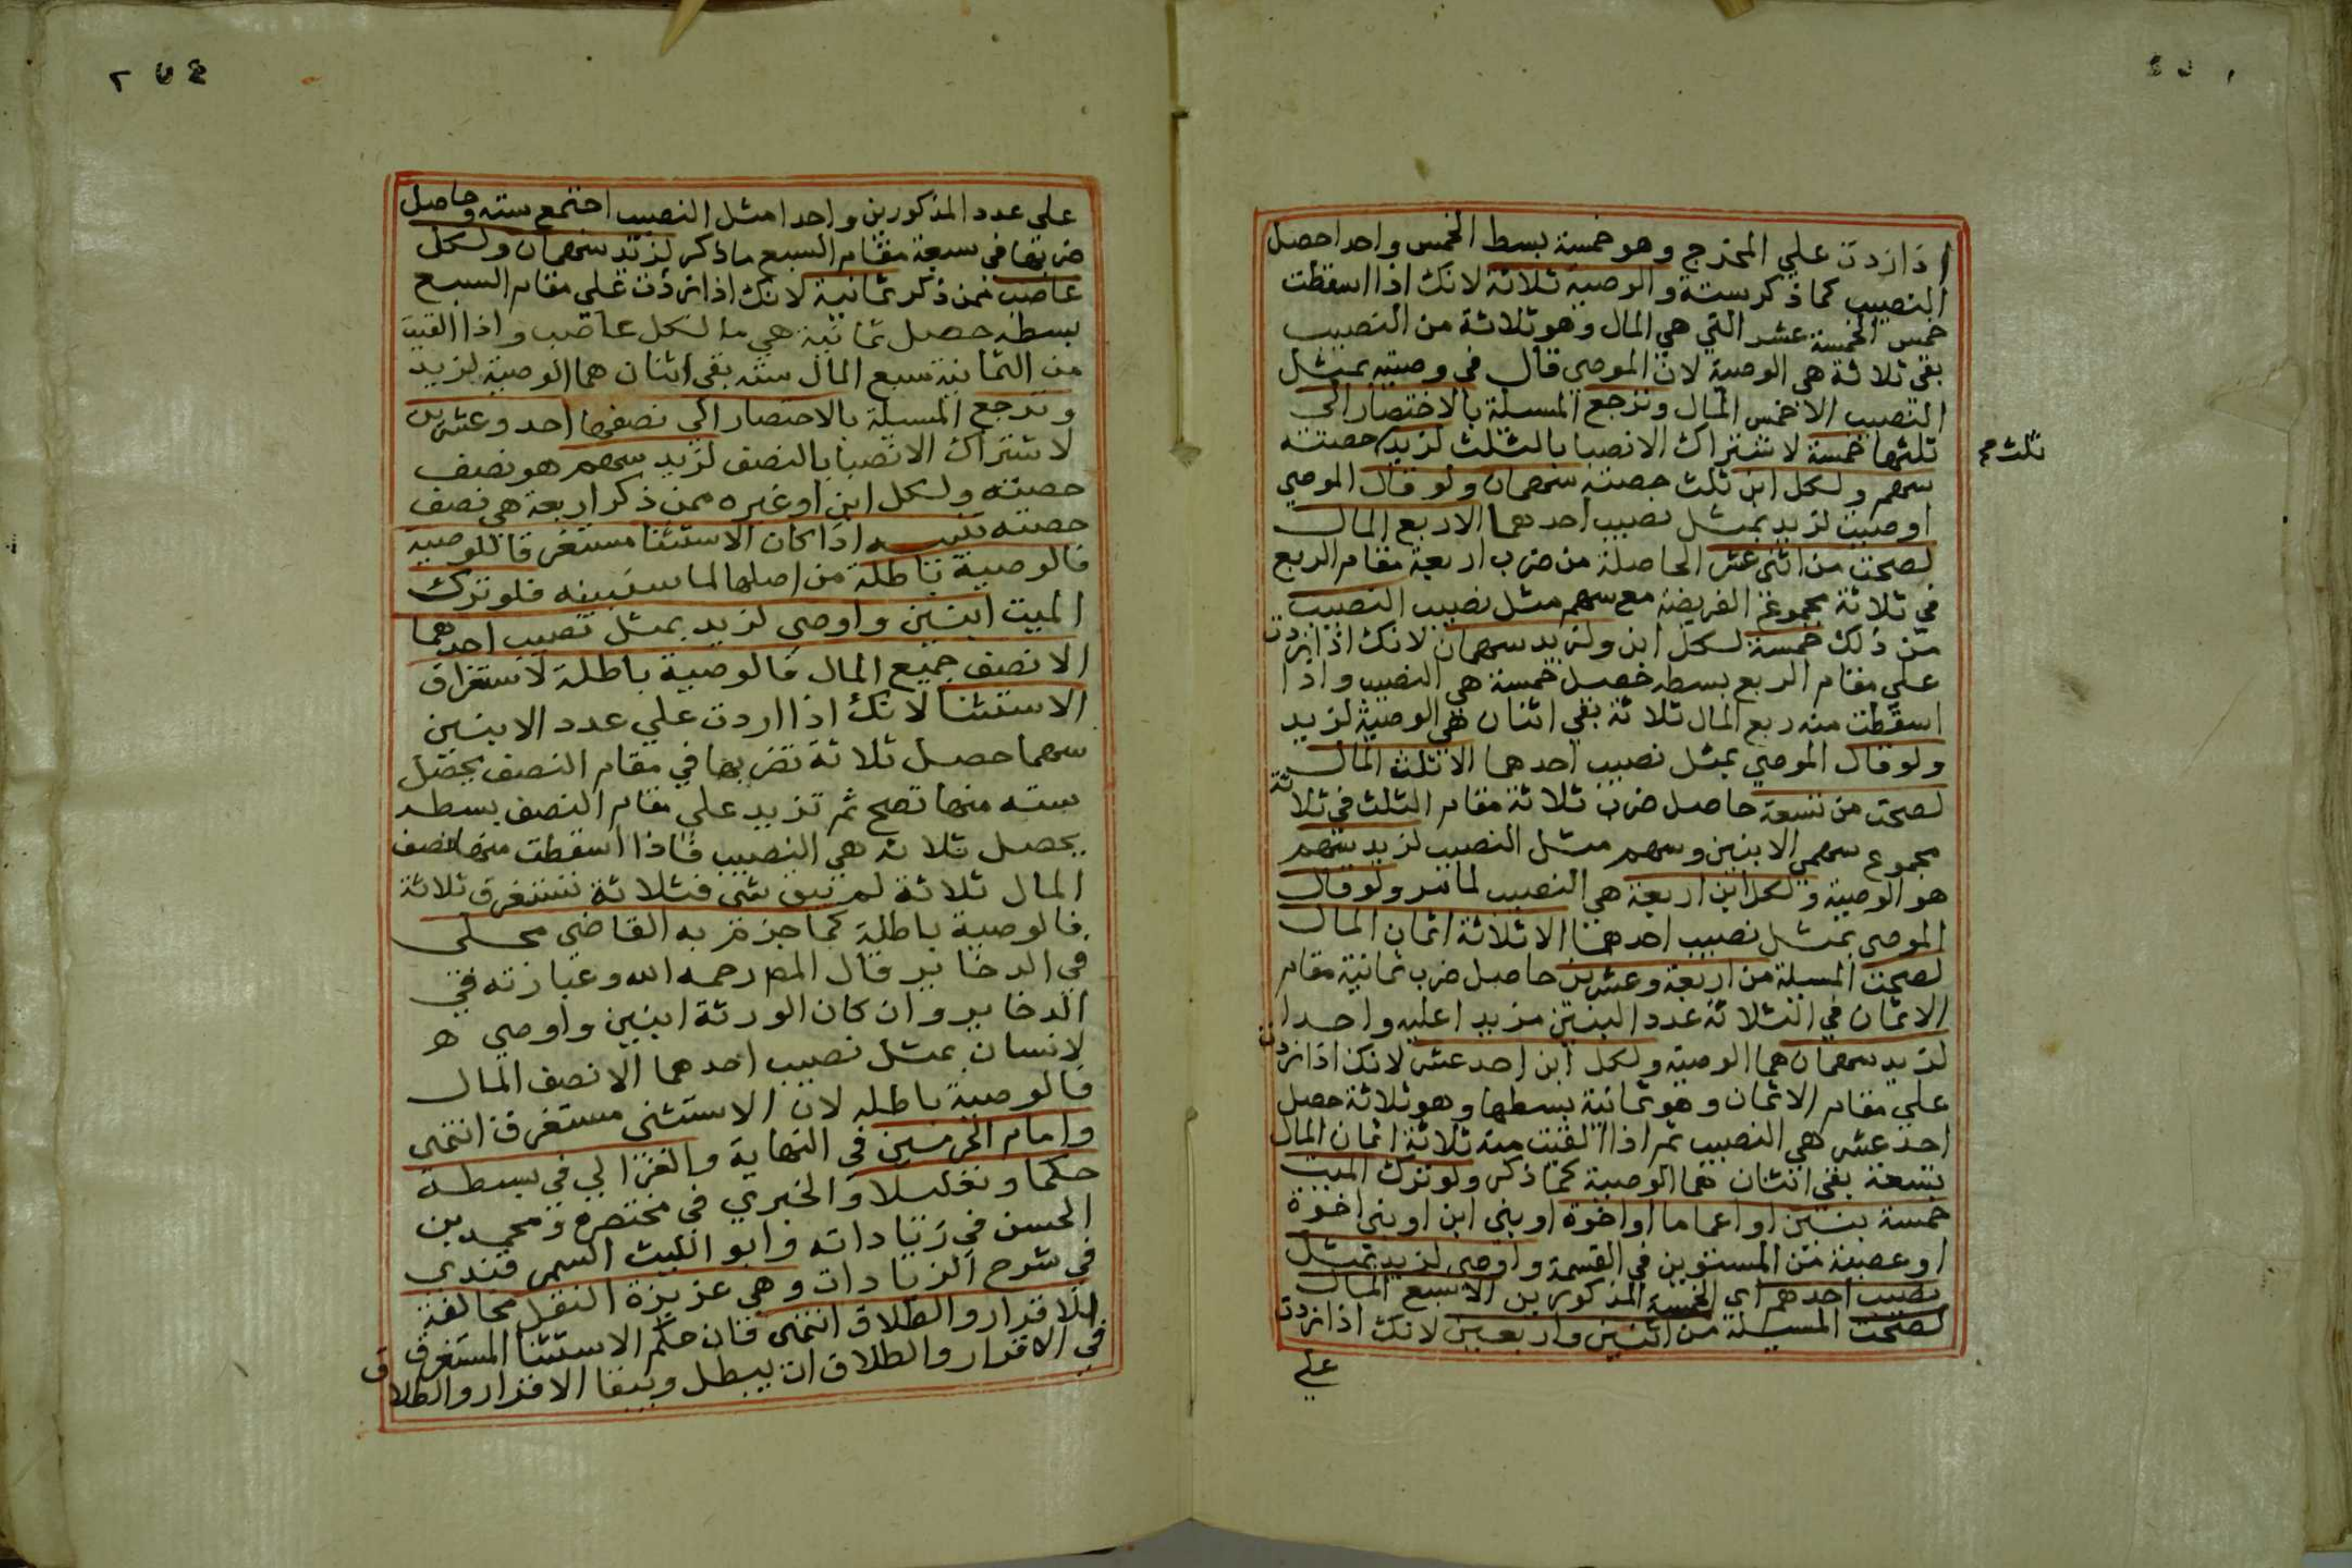 اذا زدت علي المخرج وهو خمسة بسط الخمس واحدا حصل
النصيب كما ذكر ستة والوصية ثلاثة لانك اذا اسقطت
خمس الخمسة عشر التي هي المال وهو ثلاثة من النصيب
بقي ثلاثة هي الوصية لان الموصي قال في وصيته بمثل
النصيب الا خمس المال وترجع المسلة بالاختصار الي
ثلثها خمسة لاشتراك الانصبا بالثلث لزيد حصته
ثلث
سهم ولكل ابن ثلث حصته سهمان ولو قال الموصي
اوصيت لزيد بمثل نصيب احدهما الا ربع المال
لصحت من اثني عشر الحاصلة من ضرب اربعة مقام الربع
في ثلاثة مجموع الفريضة مع سهم مثل نصيب النصيب
من ذلك خمسة لكل ابن ولزيد سهمان لانك اذا زدت
علي مقام الربع بسطه حصل خمسة هي النصيب واذا
اسقطت منه ربع المال ثلاثة بقي اثنان هي الوصية لزيد
ولو قال الموصي بمثل نصيب احدهما الا ثلث المال
لصحت من تسعة حاصل ضرب ثلاثة مقام الثلث في ثلاثة
مجموع سهمي الابنين وسهم مثل النصيب لزيد سهم
هو الوصية ولكل ابن اربعة هي النصيب لما مر ولو قال
الموصي بمثل نصيب احدهما الا ثلاثة اثمان المال
لصحت المسلة من اربعة وعشرين حاصل ضرب ثمانية مقام
الاثمان في الثلاثة عدد البنين مزيدا عليه واحدا
لزيد سهمان هما الوصية ولكل ابن احد عشر لانك اذا زدت
علي مقام الاثمان وهو ثمانية بسطها وهو ثلاثة حصل
احد عشر هي النصيب ثم اذا القيت منه ثلاثة اثمان المال
تسعة بقي اثنان هما الوصية كما ذكر ولو ترك الميت
خمسة بنين او اعماما او اخوة او بني ابن او بني اخوة
او عصبة من المستوين في القسمة واوصي لزيد بمثل
نصيب احدهم اي الخمسة المذكورين الا سبع المال
لصحت المسيلة من اثنين واربعين لانك اذا زدت
علي
علي عدد المذكورين واحدا مثل النصيب اجتمع سته وحاصل
ضربها في سبعة مقام السبع ما ذكر لزيد سهمان ولكل
عاصب ممن ذكر ثمانية لانك اذا زدت علي مقام السبع
بسطه حصل ثمانية هي ما لكل عاصب واذا القيت
من الثمانية سبع المال سته بقي اثنان هما الوصية لزيد
وترجع المسيلة بالاختصار الي نصفها احد وعشرين
لاشتراك الانصبا بالنصف لزيد سهم هو نصف
حصته ولكل ابن او غيره ممن ذكر اربعة هي نصف
حصته تنبيه اذا كان الاستثنا مستغرقا للوصية
فالوصية باطلة من اصلها لما سنبينه فلو ترك
الميت ابنين واوصي لزيد بمثل نصيب احدهما
الا نصف جميع المال فالوصية باطلة لاستغراق
الاستثنا لانك اذا اردت علي عدد الابنين
سهما حصل ثلاثة تضربها في مقام النصف يحصل
سته منها تصح ثم تزيد علي مقام النصف بسطه
يحصل ثلاثه هي النصيب فاذا اسقطت منها نصف
المال ثلاثة لم يبق شي فثلاثة تستغرق ثلاثة
فالوصية باطلة كما جزم به القاضي محلي
في الدخاير قال المص رحمه الله وعبارته في
الدخاير وان كان الورثة ابنين واوصي ه
لانسان بمثل نصيب احدهما الا نصف المال
فالوصية باطله لان الاستثني مستغرق انتهى
وامام الحرمين في النهاية والغزالي في بسيطه
حكما وتعليلا والخبري في مختصره ومحمد بن
الحسن في زياداته وابو الليث السمرقندي
في شرح الزيادات وهي عزيزة النقل مخالفة
للاقرار والطلاق انتهى فان حكم الاستثنا المستغرق
في الاقرار والطلاق ان يبطل ويبقا الاقرار والطلاق